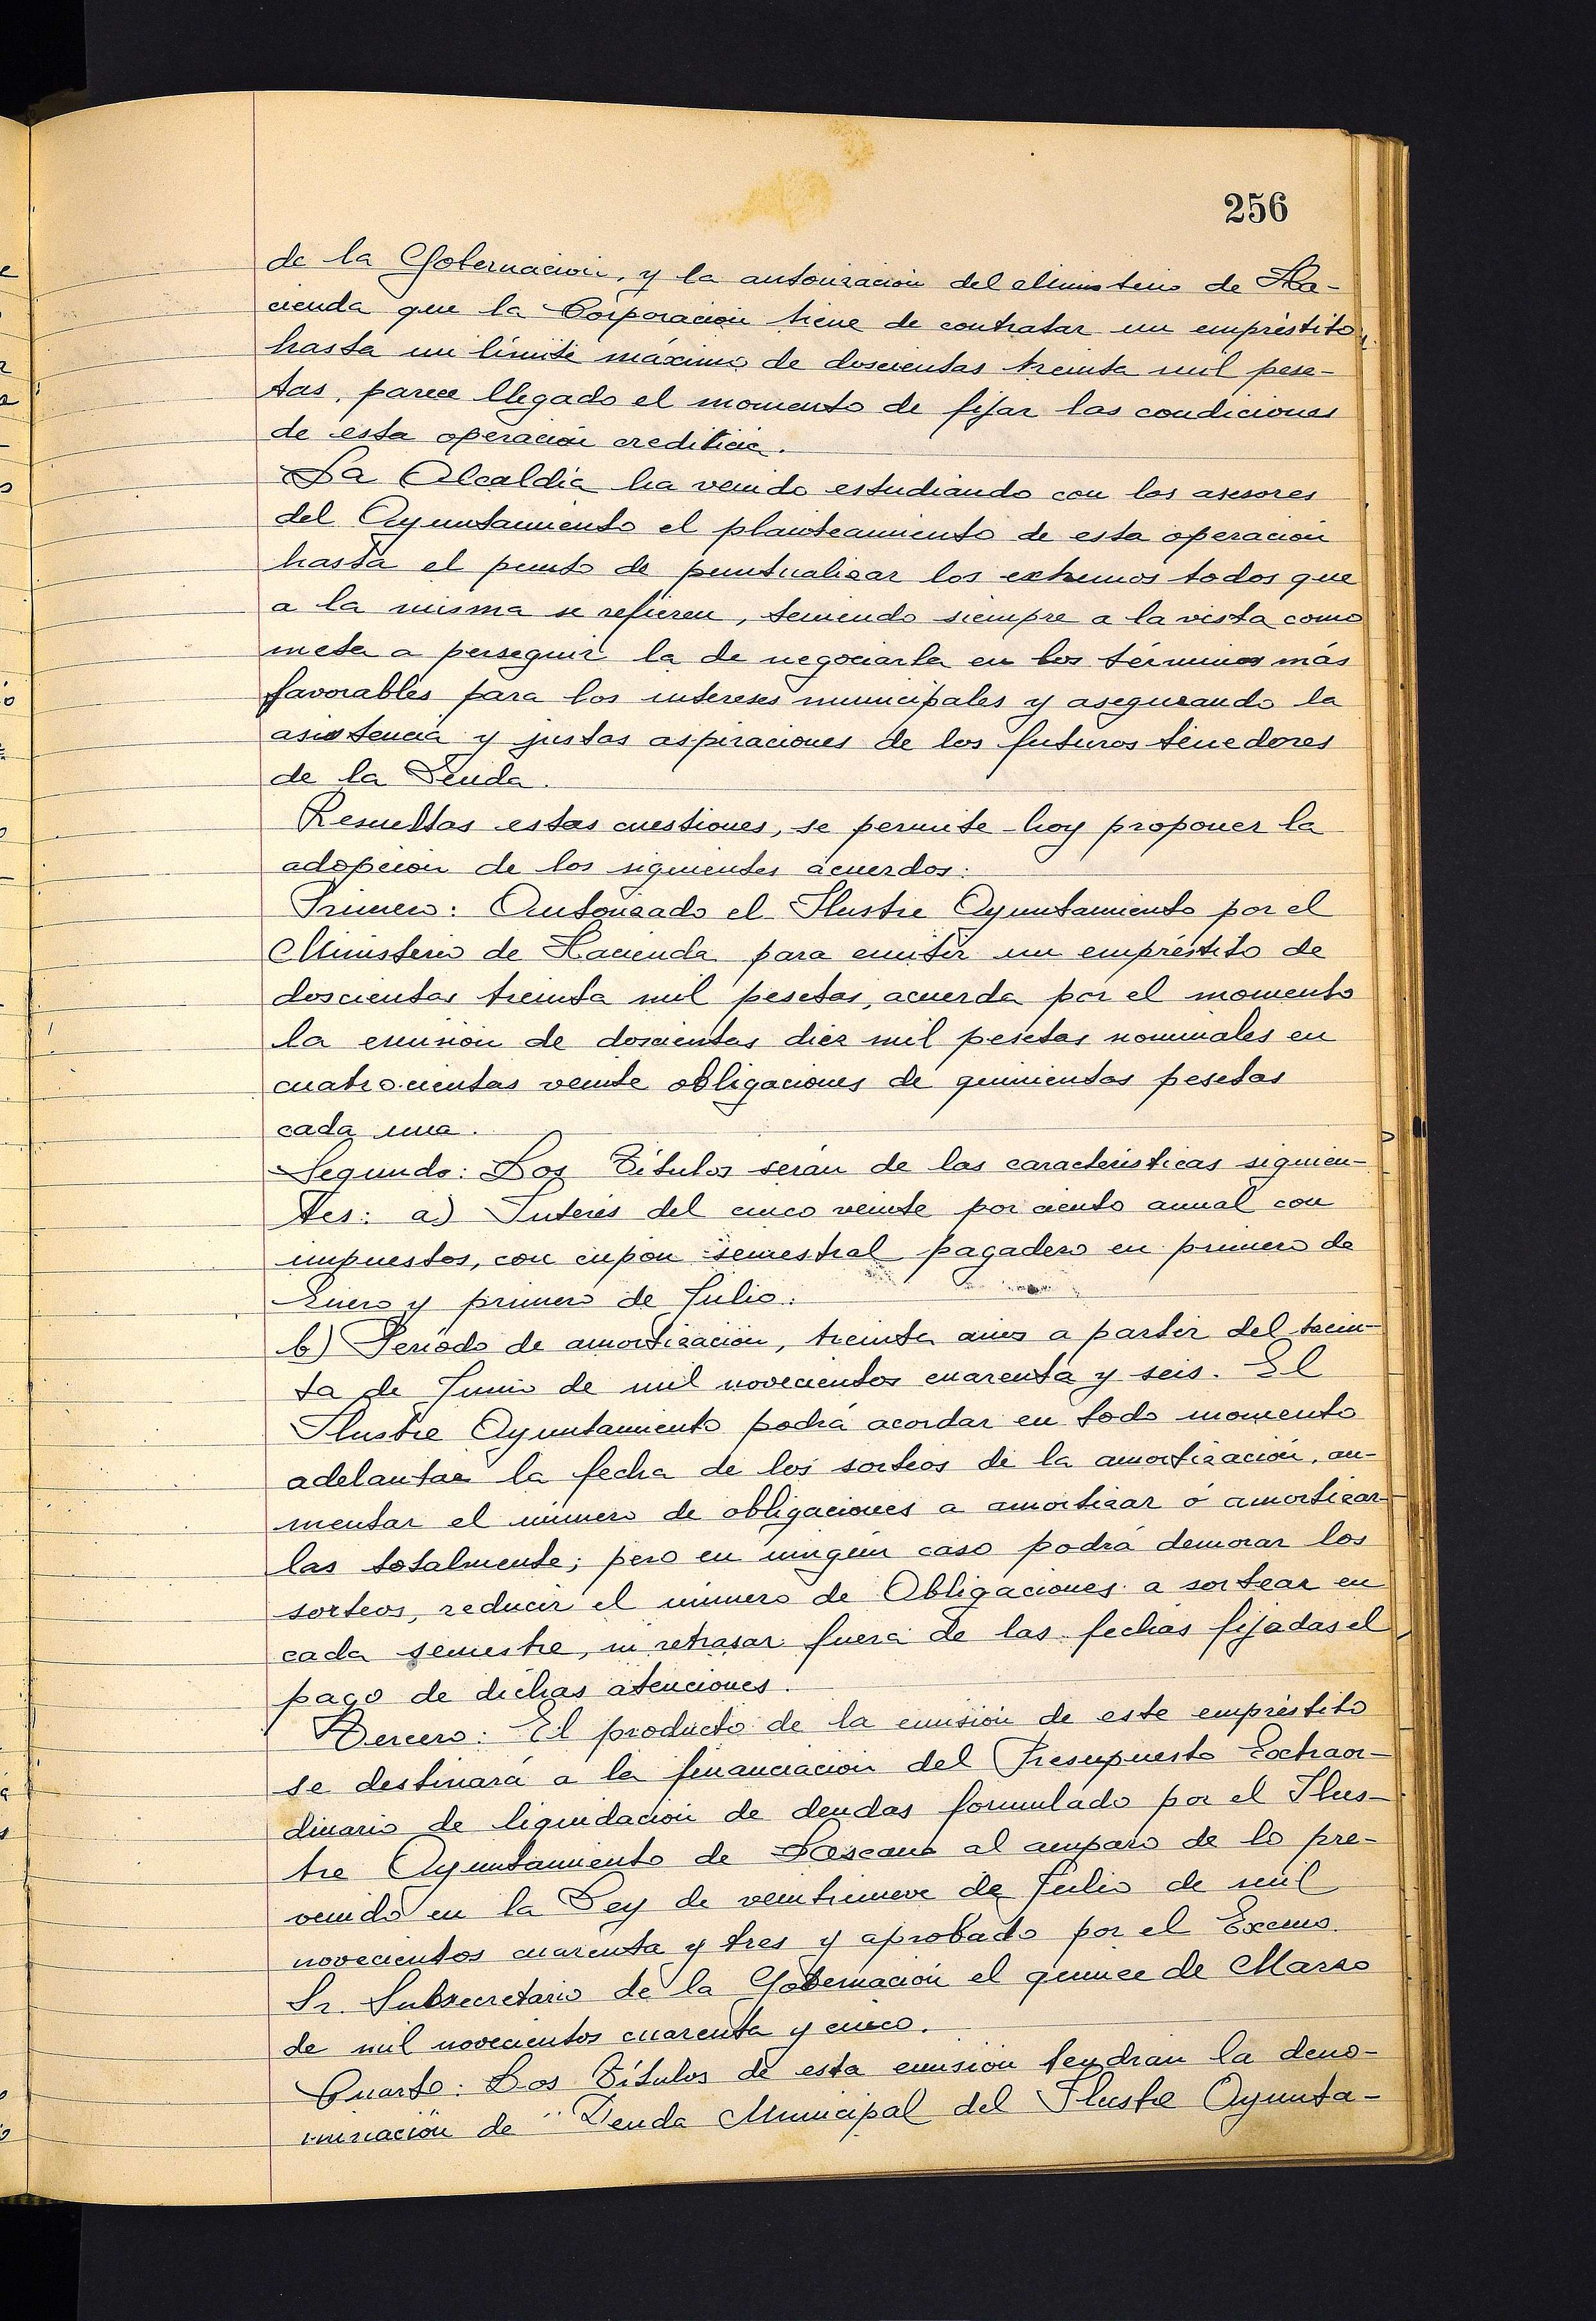 256
de la Gobernación, y la autorización del Ministerio de Ha-
cienda que la Corporación tiene de contratar un empréstito,
hasta un límite máximo de doscientas treinta mil pese-
tas, parece llegado el momento de fijar las condiciones
de esta operación crediticia.
La Alcaldía ha venido estudiando con los asesores
del Ayuntamiento el planteamiento de esta operación
hasta el punto de puntualizar los extremos todos que
a la misma se refieren, teniendo siempre a la vista como
meta a perseguir la de negociarla en los términos más
favorables para los intereses municipales y asegurando la
asistencia y justas aspiraciones de los futuros tenedores
de la Deuda.
Resueltas estas cuestiones, se permite hoy proponer la
adopción de los siguientes acuerdos:
Primero: Autorizado el Ilustre Ayuntamiento por el
Ministerio de Hacienda para emitir un empréstito de
doscientas treinta mil pesetas, acuerda por el momento
la emisión de doscientas diez mil pesetas nominales en
cuatrocientas veinte obligaciones de quinientas pesetas
cada una.
Segundo: Los Títulos serán de las características siguien-
tes: a) Interés del cinco veinte por ciento anual con
impuestos, con cupón semestral pagadero en primero de
Enero y primero de Julio.
b) Período de amortización, treinta años a partir del trein-
ta de Junio de mil novecientos cuarenta y seis. El
Ilustre Ayuntamiento podrá acordar en todo momento
adelantar la fecha de los sorteos de la amortización, au-
mentar el número de obligaciones a amortizar ó amortizar-
las totalmente; pero en ningún caso podrá demorar los
sorteos, reducir el número de Obligaciones a sortear en
cada semestre, ni retrasar fuera de las fechas fijadas el
pago de dichas atenciones.
Tercero: El producto de la emisión de este empréstito
se destinará a la financiación del Presupuesto Extraor-
dinario de liquidación de deudas formulado por el Ilus-
tre Ayuntamiento de Lezcano al amparo de lo pre-
venido en la Ley de veintinueve de Julio de mil
novecientos cuarenta y tres y aprobado por el Excmo.
Sr. Subsecretario de la Gobernación el quince de Marzo
de mil novecientos cuarenta y cinco.
Cuarto: Los Títulos de esta emisión tendrán la deno-
minación de "Deuda Municipal del Ilustre Ayunta-